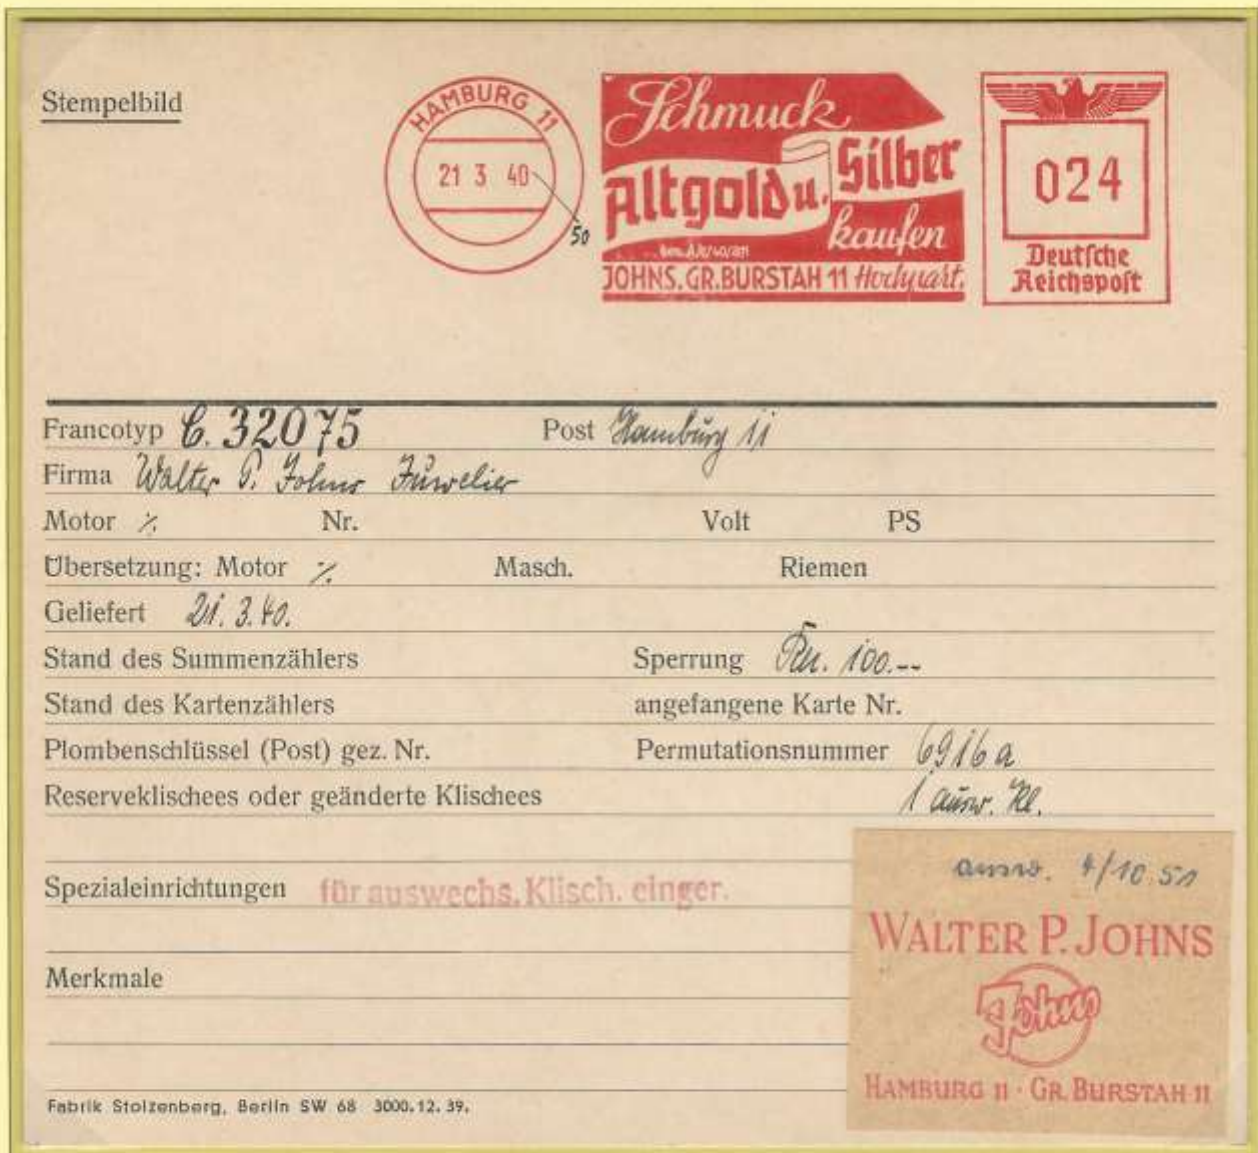 Stempelbild
HAMBURG 11
21 3 40
50
Schmuck
Altgold u. Silber
kaufen
JOHNS. GR. BURSTAH 11 Hochpart.
024
Deutsche
Reichspost
Francotyp C. 32075 Post Hamburg 11
Firma Walter P. Johns Juwelier
Motor ·/. Nr. Volt PS
Übersetzung: Motor ·/. Masch. Riemen
Geliefert 21. 3. 40.
Stand des Summenzählers Sperrung 100.--
Stand des Kartenzählers angefangene Karte Nr.
Plombenschlüssel (Post) gez. Nr. Permutationsnummer 6916 a
Reserveklischees oder geänderte Klischees 1 ausw. Kl.
Spezialeinrichtungen für auswechs. Klisch. einger.
Merkmale
ausw. 4/10 51
WALTER P. JOHNS
Johns
HAMBURG 11 · GR. BURSTAH 11
Fabrik Stolzenberg, Berlin SW 68 3000. 12. 39.